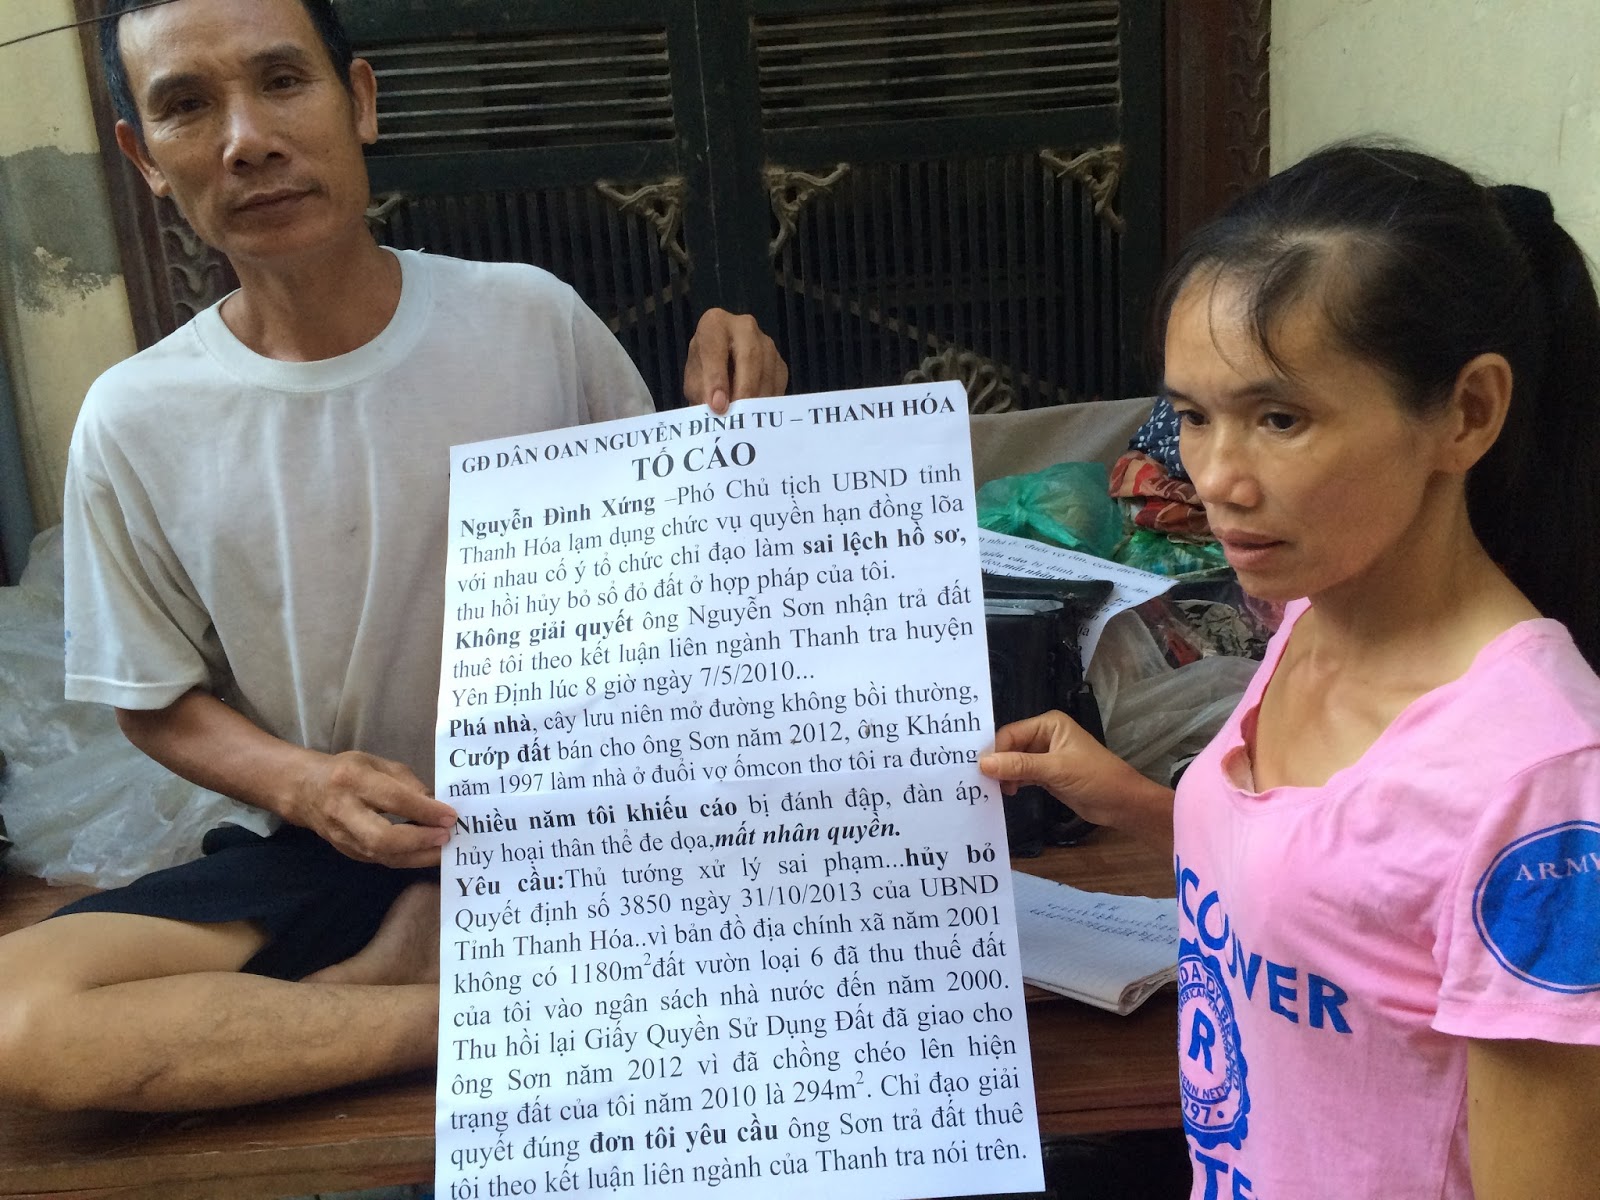 GĐ DÂN OAN NGUYỄN ĐÌNH TU – THANH HÓA
TỐ CÁO
Nguyễn Đình Xứng –Phó Chủ tịch UBND tỉnh
Thanh Hóa lạm dụng chức vụ quyền hạn đồng lõa
với nhau cố ý tổ chức chỉ đạo làm sai lệch hồ sơ,
thu hồi hủy bỏ sổ đỏ đất ở hợp pháp của tôi.
Không giải quyết ông Nguyễn Sơn nhận trả đất
thuê tôi theo kết luận liên ngành Thanh tra huyện
Yên Định lúc 8 giờ ngày 7/5/2010...
Phá nhà, cây lưu niên mở đường không bồi thường,
Cướp đất bán cho ông Sơn năm 2012, ông Khánh
năm 1997 làm nhà ở đuổi vợ ốmcon thơ tôi ra đường
Nhiều năm tôi khiếu cáo bị đánh đập, đàn áp,
hủy hoại thân thể đe dọa,mất nhân quyền.
Yêu cầu:Thủ tướng xử lý sai phạm...hủy bỏ
Quyết định số 3850 ngày 31/10/2013 của UBND
Tỉnh Thanh Hóa..vì bản đồ địa chính xã năm 2001
không có 1180m²đất vườn loại 6 đã thu thuế đất
của tôi vào ngân sách nhà nước đến năm 2000.
Thu hồi lại Giấy Quyền Sử Dụng Đất đã giao cho
ông Sơn năm 2012 vì đã chồng chéo lên hiện
trạng đất của tôi năm 2010 là 294m². Chỉ đạo giải
quyết đúng đơn tôi yêu cầu ông Sơn trả đất thuê
tôi theo kết luận liên ngành của Thanh tra nói trên.
ARMY
OVER
R
1997